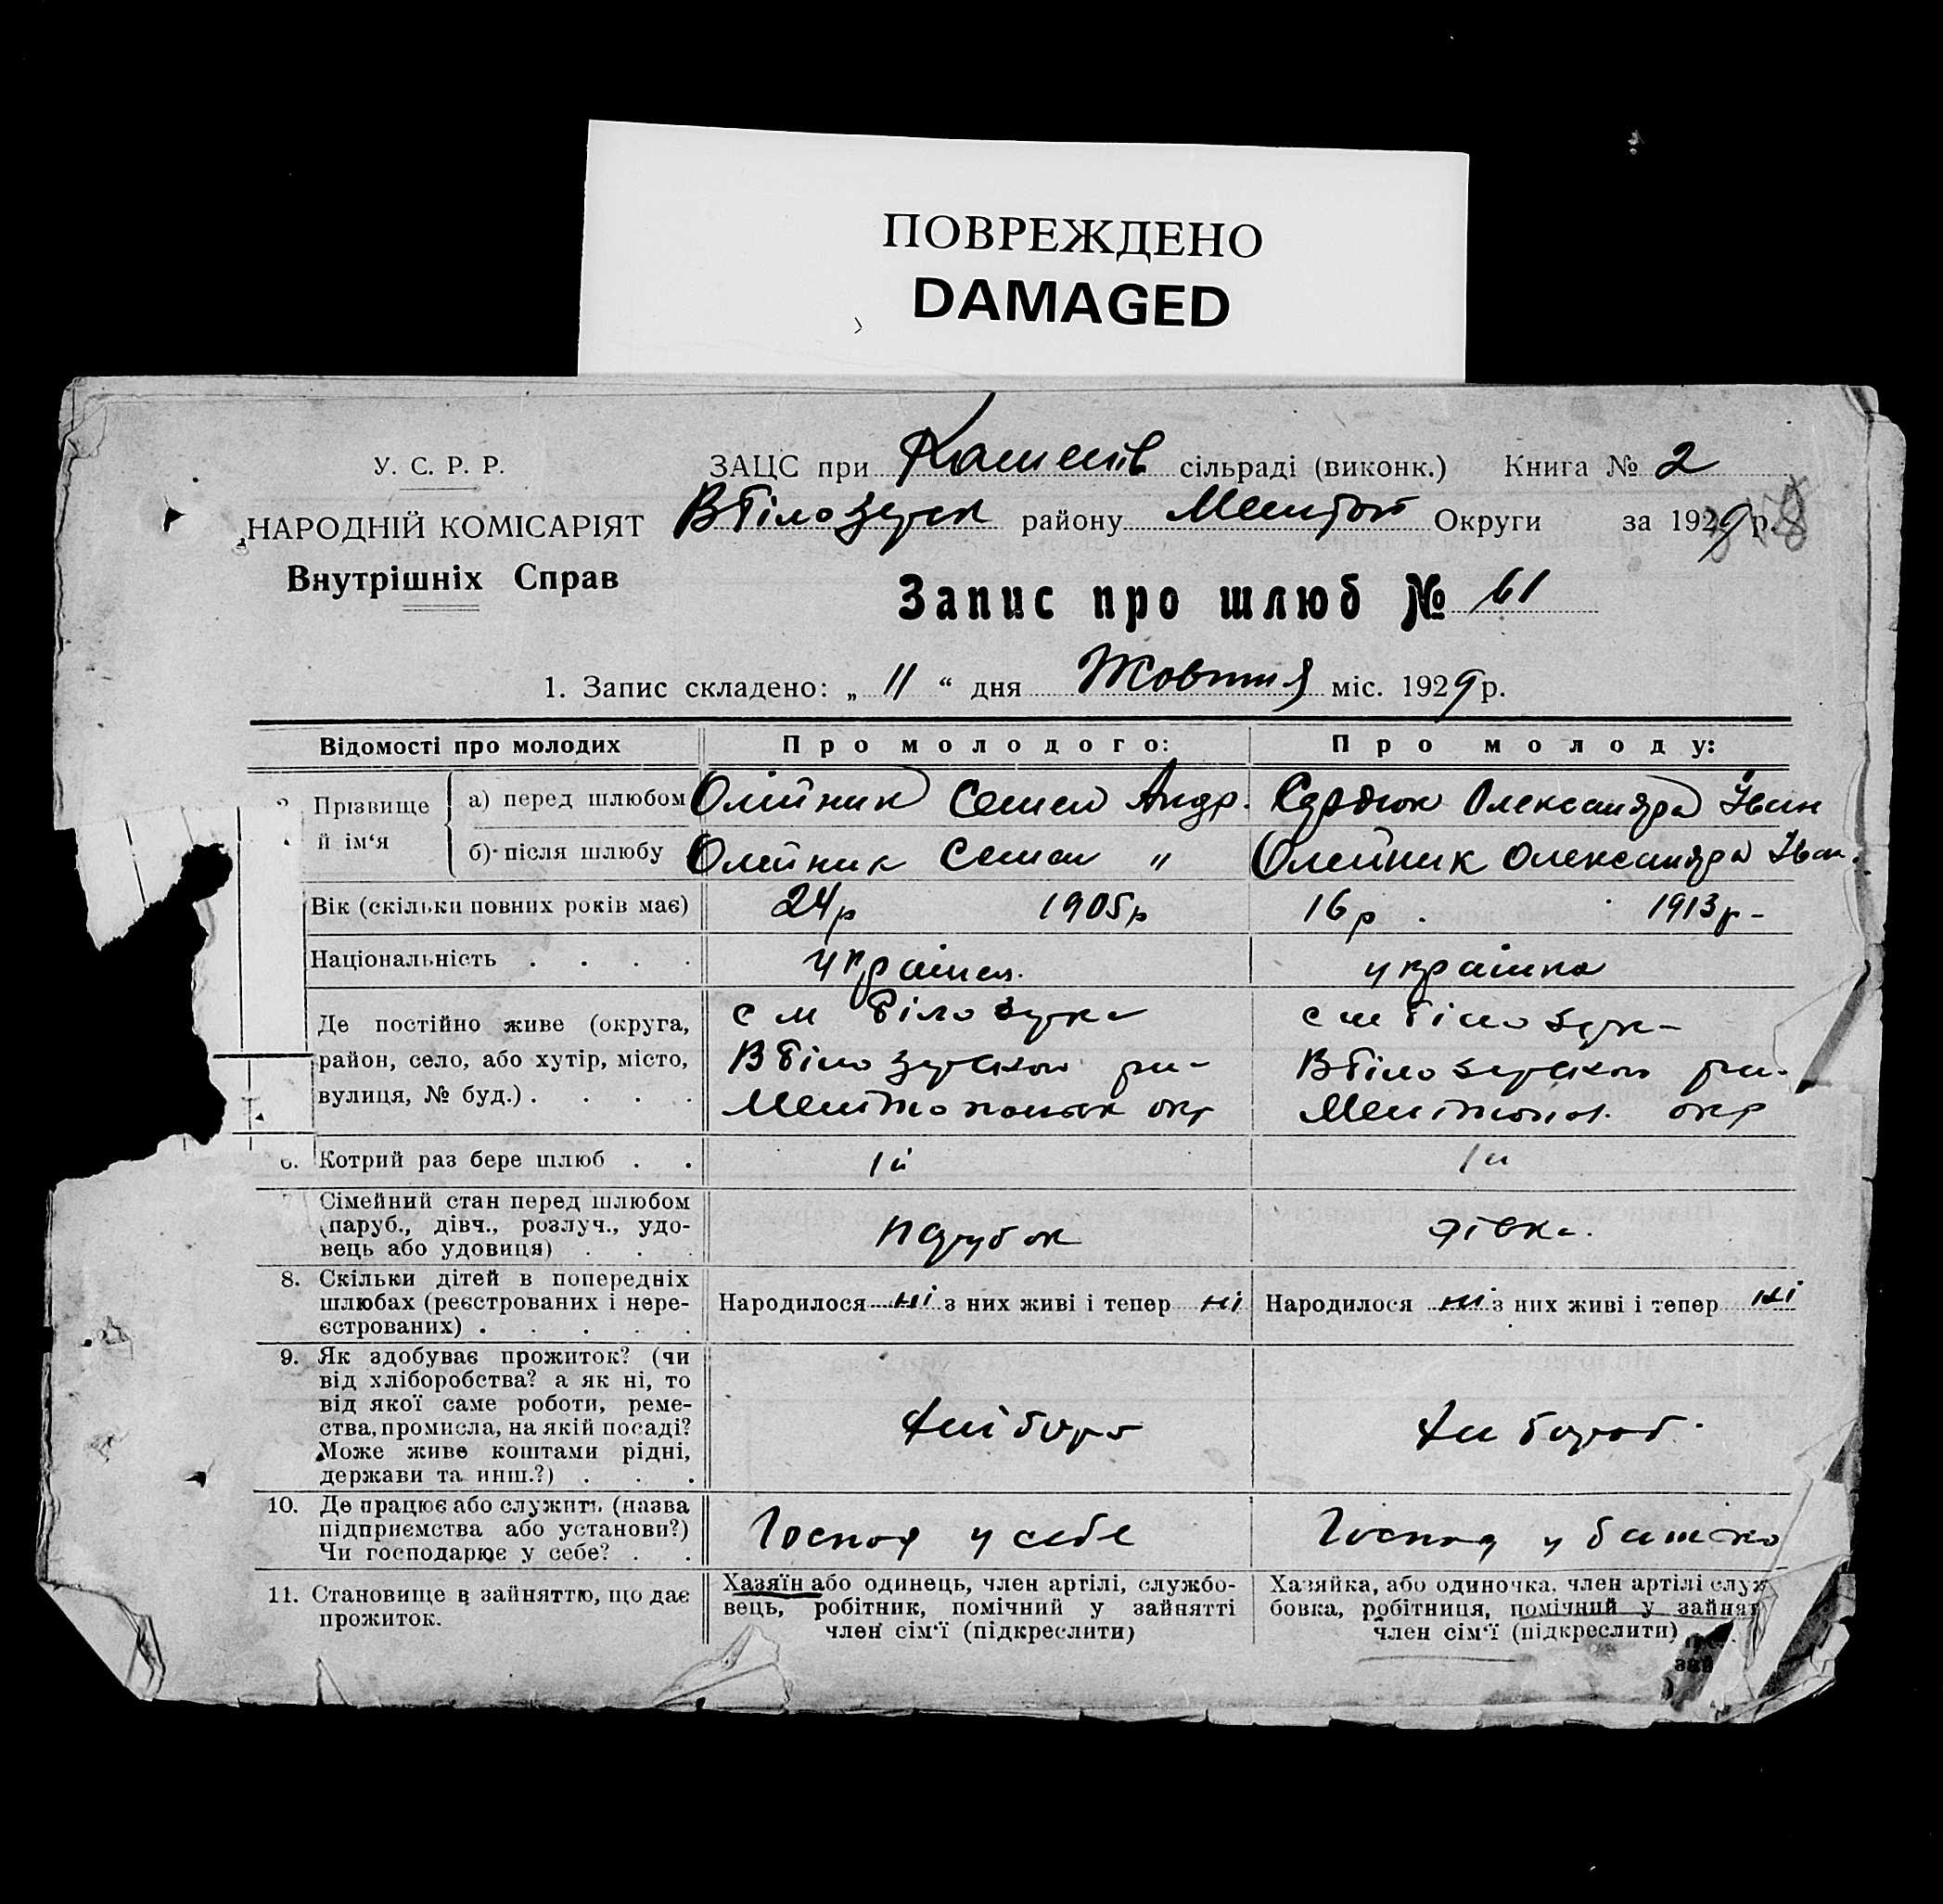 ПОВРЕЖДЕНО
DAMAGED
У. С. Р. Р.
НАРОДНІЙ КОМІСАРІЯТ
Внутрішніх Справ
ЗАЦС при сільраді (виконк.) Книга № 2
ВБілозерск району Меліт Округи за 1929 р.
Запис про шлюб № 61
1. Запис складено: „ 11 “ дня Жовтня міс. 1929 р.
Відомості про молодих
Про молодого:
Про молоду:
Прізвище й ім‘я
а) перед шлюбом
Олійник Семен Андр.
Сердюк Олександра Іван
б) після шлюбу
Олейник Семен "
Олейник Олександра Іван.
Вік (скільки повних років має)
24р 1905р
16р. 1913р-
Національність . . . .
україн.
українка
Де постійно живе (округа,
район, село, або хутір, місто,
вулиця, № буд.) . . . .
с м Білозерка
ВБілозерсков ра-
Мелітопольск окр
с м Білозерк-
ВБілозерсков ра-
Мелітопол. окр
6. Котрий раз бере шлюб . .
1й
1й
7 Сімейний стан перед шлюбом
(паруб., дівч., розлуч., удо-
вець або удовиця) . . .
парубок
дівка.
8. Скільки дітей в попередніх
шлюбах (реєстрованих і нере-
єстрованих) . . . . .
Народилося ні з них живі і тепер ні
Народилося ні з них живі і тепер ні
9. Як здобуває прожиток? (чи
від хліборобства? а як ні, то
від якої саме роботи, реме-
ства, промисла, на якій посаді?
Може живе коштами рідні,
держави та инш.?) . . .
хлібороб
хлібороб.
10. Де працює або служить (назва
підприємства або установи?)
Чи господарює у себе? . .
Господ у себе
Господ у батько
11. Становище в зайняттю, що дає
прожиток.
Хазяїн або одинець, член артілі, службо-
вець, робітник, помічний у зайнятті
член сім‘ї (підкреслити)
Хазяйка, або одиночка, член артілі служ
бовка, робітниця, помічний у зайнят
член сім‘ї (підкреслити)